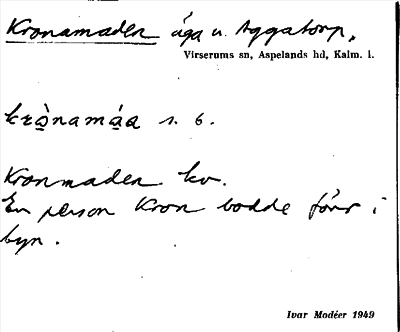 Kronamaden äga u. Aggatorp.
Virserums sn, Aspelands hd, Kalm. l.
krònamáa s. 6.
Kronmaden kv.
En person Kron bodde förr i
byn.
Ivar Modéer 1949